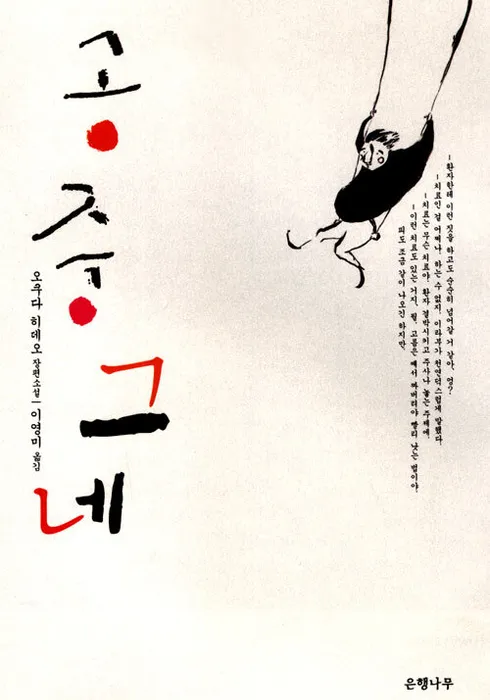 공중그네
오쿠다 히데오 장편소설 | 이영미 옮김
－환자한테 이런 짓을 하고도 순순히 넘어갈 거 같아, 엉?
－치료인 걸 어쩌나. 하는 수 없지. 이라부가 천연덕스럽게 말했다.
－치료는 무슨 치료야. 환자 결박시키고 주사나 놓는 주제에.
－이런 치료도 있는 거지, 뭘. 고름은 째서 짜버려야 빨리 낫는 법이야.
피도 조금 같이 나오긴 하지만.
은행나무